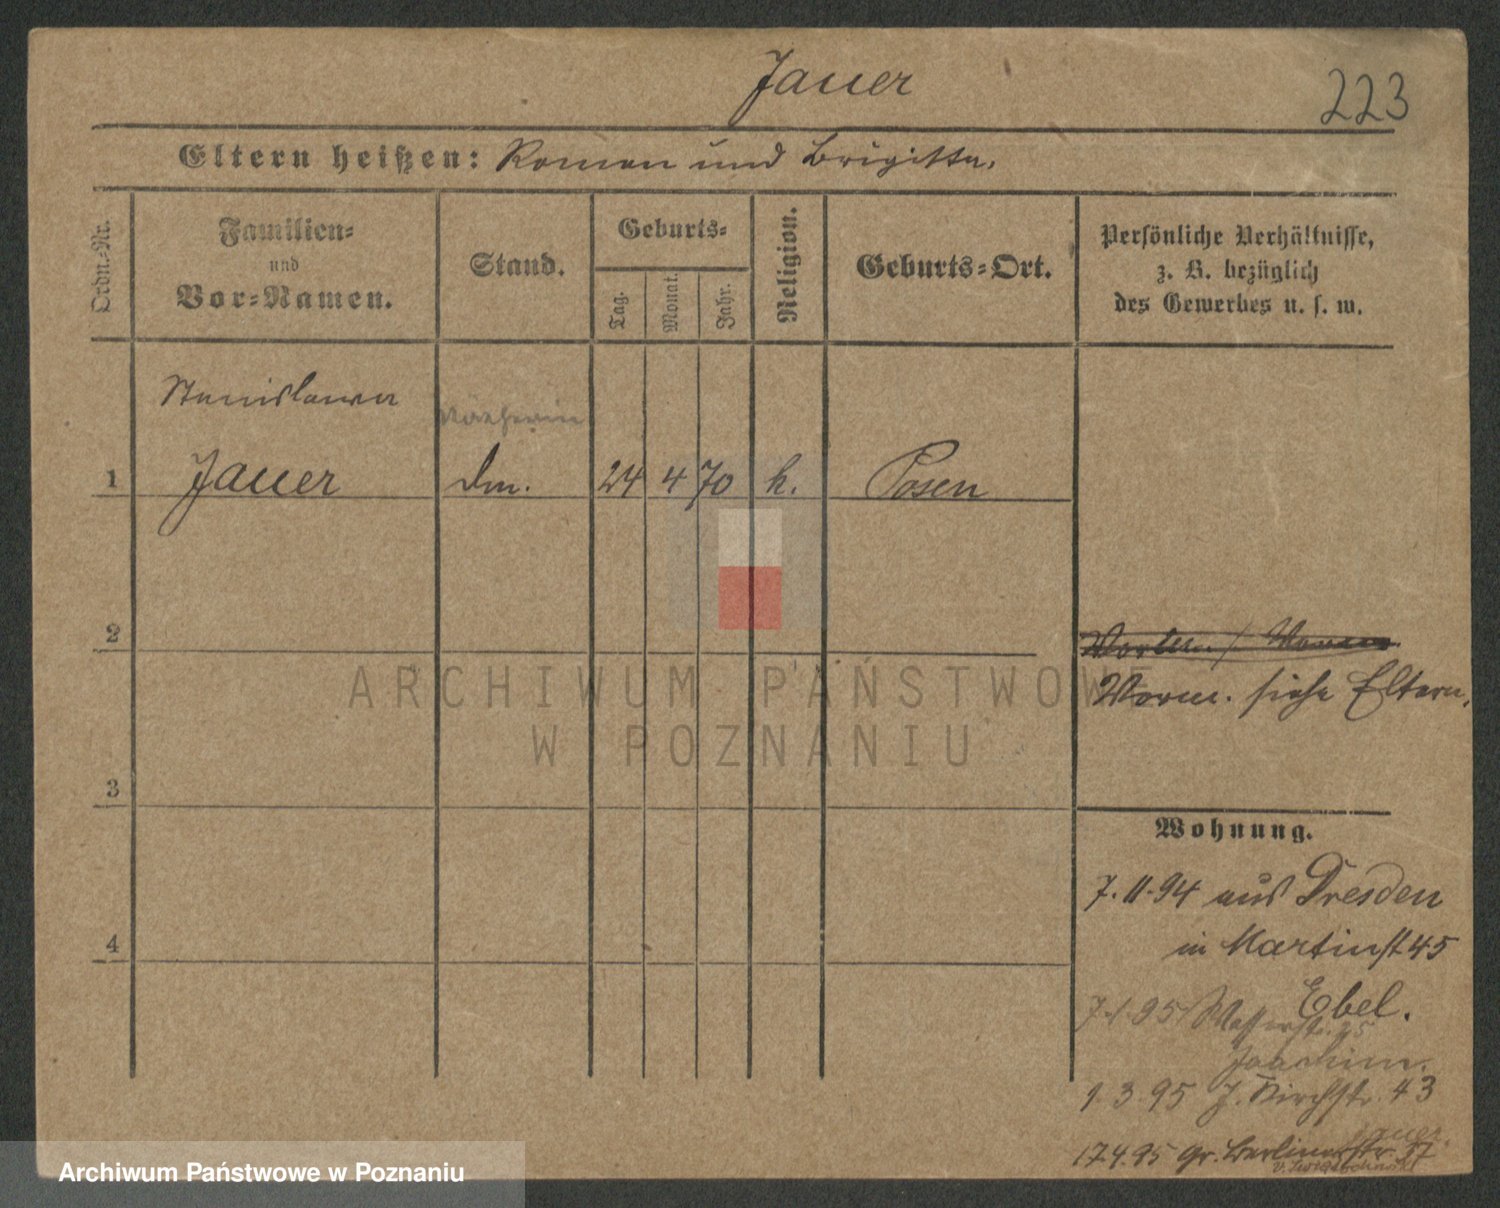 Jauer
223
Eltern heißen: Roman und Brigitta.
Ordn.-Nr.
Familien-
und
Vor-Namen.
Stand.
Geburts-
Tag.
Monat.
Jahr.
Religion.
Geburts-Ort.
Persönliche Verhältnisse,
z. B. bezüglich
des Gewerbes u. s. w.
Stanislawa
Näherin
1 Jauer 24 4 70 k. Posen
2
Vorm. siehe Eltern.
3
Wohnung.
7.11.94 aus Dresden
in Martinst 45
Ebel.
7.1.95 Wasserstr. 25
Joachim.
4
1.3.95 J. Kirchstr. 43
Jauer.
17.4.95 gr. Berlinerstr. 37
ARCHIWUM PAŃSTWOWE
W POZNANIU
Archiwum Państwowe w Poznaniu